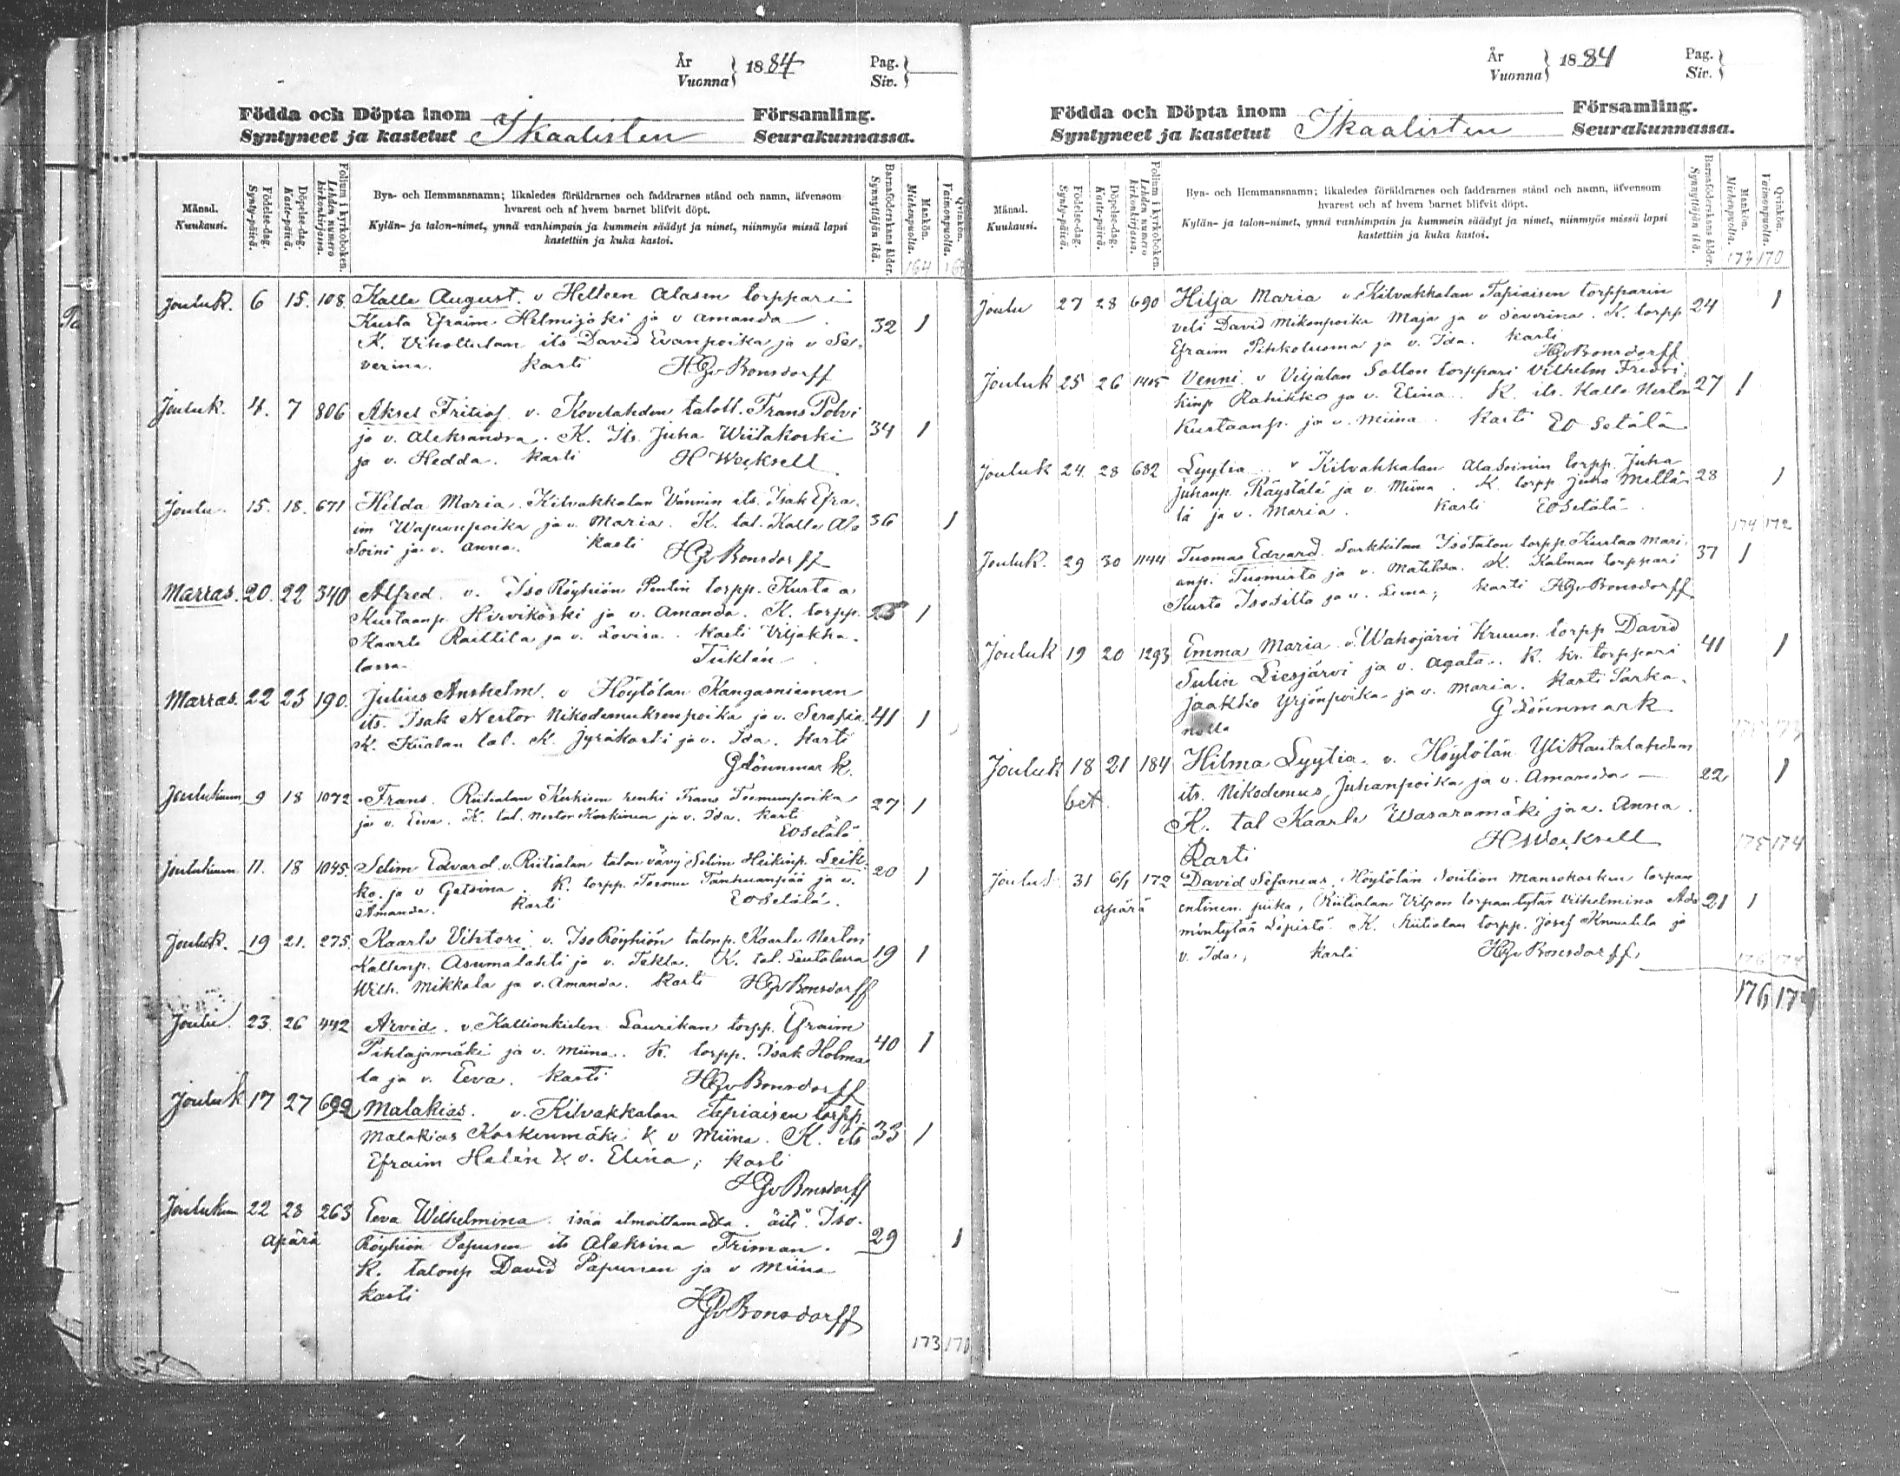 År
Vuonna } 1884
Pag.
Siv. }
Födda och Döpta inom Församling.
Syntyneet ja kastetut Ikaalisten Seurakunnassa.
Månad.
Kuukausi.
Födelse-dag.
Synty-päivä.
Döpelse-dag.
Kaste-päivä.
Folium i kyrkoboken.
Lehden numero kirkonkirjassa.
Bya- och Hemmansnamn; likaledes föräldrarnes och faddrarnes stånd och namn, äfvensom
hvarest och af hvem barnet blifvit döpt.
Kylän- ja talon-nimet, ynnä vanhimpain ja kummein säädyt ja nimet, niinmyös missä lapsi
kastettiin ja kuka kastoi.
Barnaföderskans ålder.
Synnyttäjän ikä.
Mankön.
Miehenpuolta.
Qvinkön.
Vaimonpuolta.
164
Jouluk. 6 15. 108. Kalle August. v Helteen Alasen torppari
Kusta Efraim Helmijoski ja v Amanda 32 1
K. Vihattulan its David Evanpoika ja v Se-
verina. Kasti HGvBonsdorff
Jouluk. 4. 7 806 Aksel Fritiof v. Kovelahden taloll. Frans Polvi
ja v. Aleksandra. K. Its. Juha Wiitakoski 34 1
ja v. Hedda. Kasti H Wecksell
Joulu. 15. 18. 671 Hilda Maria. Kilvakkalan Vännin its. Isak Efra-
im Wapunpoika ja v. Maria. K. tal. Kalle Ala 36 1
Soini ja v. Anna. Kasti HGvBonsdorff
Marras. 20. 22 340 Alfred. v. Iso Röyhiön Pentin torpp. Kusta a
Kustaanp. Hirvikoski ja v. Amanda. K. torpp. 25 1
Kaarle Raittila ja v. Lovisa. Kasti Viljakka-
lassa Tuklén
Marras. 22 23 190. Julius Anshelm. v Höytölän Kangasniemen
its. Isak Nestor Nikodemuksenpoika ja v. Serafia. 41 1
K. Kiialan tal. K. Jyräkoski ja v. Ida. Kasti
GLönnmark.
Joulukuun 9 18 1072 Frans. Riitialan Kerhisen renki Frans Toomunpoika
ja v. Eeva. K. tal. Nestor Koskinen ja v. Ida. Kasti 27 1
EOSetälä
Joulukuun 11. 18 1045. Selim Edvard v. Riitialan talon vävy Selim Heikinp. Leik-
ko ja v Getsina. K. torpp. Toomu Tanhuanpää ja v. 20 1
Amanda. Kasti EOSetälä.
Jouluk. 19 21. 275. Kaarle Vihtori v. Iso Röyhiön talonp. Kaarle Nestori
Kallenp. Asumalahti ja v. Tekla. K. tal. Lautalura 19 1
Wilh. Mikkola ja v. Amanda. Kasti HGvBonsdorff
Joulu. 23. 26 442 Arvid. v. Kallionkielen Laurikan torpp. Efraim
Pihlajamäki ja v. Miina. K. torpp. Isak Holma- 40 1
la ja v. Eeva. Kasti HGvBonsdorff
Jouluk 17 27 692 Malakias. v. Kilvakkalan Tapiaisen torpp.
Malakias Koskenmäki & v Miina. K. its 33 1
Efraim Helén & v. Elina; Kasti
HGvBonsdorff
Joulukuu 22 28 263 Eeva Wilhelmina. isää ilmoittamatta. äiti. Iso-
äpärä Röyhiön Papusen its Aleksina Friman. 29 1
K. talonp David Papunen ja v Miina
Kasti
HGvBonsdorff
173 170
År
Vuonna } 1884
Pag.
Siv. }
Födda och Döpta inom Församling.
Syntyneet ja kastetut Ikaalisten Seurakunnassa.
Månad.
Kuukausi.
Födelse-dag.
Synty-päivä.
Döpelse-dag.
Kaste-päivä.
Folium i kyrkoboken.
Lehden numero kirkonkirjassa.
Bya- och Hemmansnamn; likaledes föräldrarnes och faddrarnes stånd och namn, äfvensom
hvarest och af hvem barnet blifvit döpt.
Kylän- ja talon-nimet, ynnä vanhimpain ja kummein säädyt ja nimet, niinmyös missä lapsi
kastettiin ja kuka kastoi.
Barnaföderskans ålder.
Synnyttäjän ikä.
Mankön.
Miehenpuolta.
Qvinkön.
Vaimonpuolta.
173 170
Joulu 27 28 690 Hilja Maria v. Kilvakkalan Tapiaisen torpparin
veli David Mikonpoika Maja ja v Severina. K. torpp 24 1
Efraim Pihkoluoma ja v. Ida. Kasti
HGvBonsdorff
Jouluk 25 26 1415 Venni. v Viljalan Sollon torppari Vilhelm Fredri-
kinp Rahikko ja v. Elina. K. its. Kalle Nestor 27 1
Kustaanp. ja v. Miina. Kasti EO Setälä
Jouluk 24. 28 682 Lyylia. v Kilvakkalan AlaSoinin torpp. Juha
Juhanp. Räystälä ja v. Miina. K. torpp Juha Mettä- 28 1
lä ja v. Maria. Kasti EOSetälä.
174 172
Jouluk. 29 30 1144 Tuomas Edvard. Sarkkilan Isotalon torpp. Kustaa Mari-
anp. Tuomisto ja v. Matilda. K. Kalman torppari 37 1
Kusto Isosilta ja v. Lena; Kasti HGvBonsdorff
Jouluk 19 20 1293 Emma Maria v. Wahojärvi Kruun. torpp David
Sulin Liesjärvi ja v. Agata. K. Kr. torppari 41 1
Jaakko Yrjönpoika ja v. Maria. Kasti Parka-
nolla G Lönnmark
Jouluk 18 21 184 Hilma Lyytia v. Höytölän YliRautalahden
bet. its. Nikodemus Juhanpoika ja v. Amanda 22 1
K. tal Kaarle Wasaramäki ja v. Anna.
Kasti H Wecksell
175 174
Joulu 31 6/1 172 David Sefanias. Höytölän Soution Mansokosken torpan
äpärä entinen piika, Riitialan Vilpon torpantytär Vilhelmina Ada- 21 1
mintytär Lepistö. K. Riitialan torpp. Josef Knuutila ja
v. Ida, Kasti HGvBonsdorff.
176 174
176 174